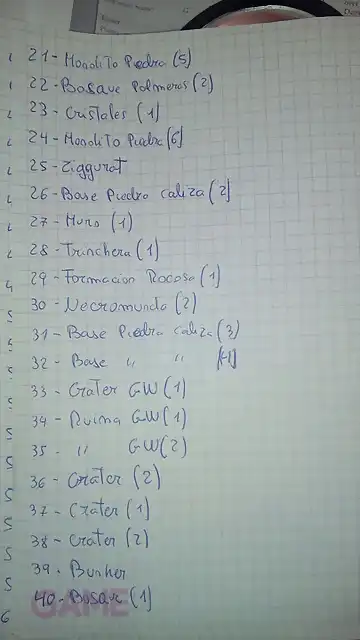 21- Monolito Piedra (5)
22- Bosque Palmeras (2)
23- Cristales (1)
24- Monolito Piedra (6)
25- Ziggurat
26- Base Piedra Caliza (2)
27- Muro (1)
28- Trinchera (1)
29- Formacion Rocosa (1)
30- Necromunda (2)
31- Base Piedra Caliza (3)
32- Base " "
33- Crater GW (1)
34- Ruina GW (1)
35- " GW (2)
36- Crater (2)
37- Crater (1)
38- Crater (2)
39- Bunker
40- Bosque (1)
GAME